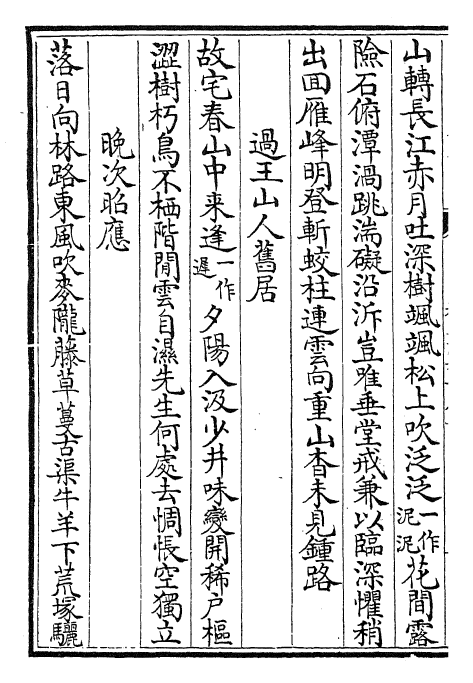 山轉長江赤月吐深樹颯颯松上吹泛泛一作泥泥花間露
險石俯潭渦跳湍礙沿泝豈唯垂堂戒兼以臨深懼稍
出回雁峰明登斬蛟柱連雲向重山杳未見鍾路
過王山人舊居
故宅春山中来逢一作遲夕陽入汲少井味變開稀戶樞
澀樹朽鳥不栖階閒雲自濕先生何處去惆悵空獨立
晚次昭應
落日向林路東風吹麥隴藤草蔓古渠牛羊下荒塚驪